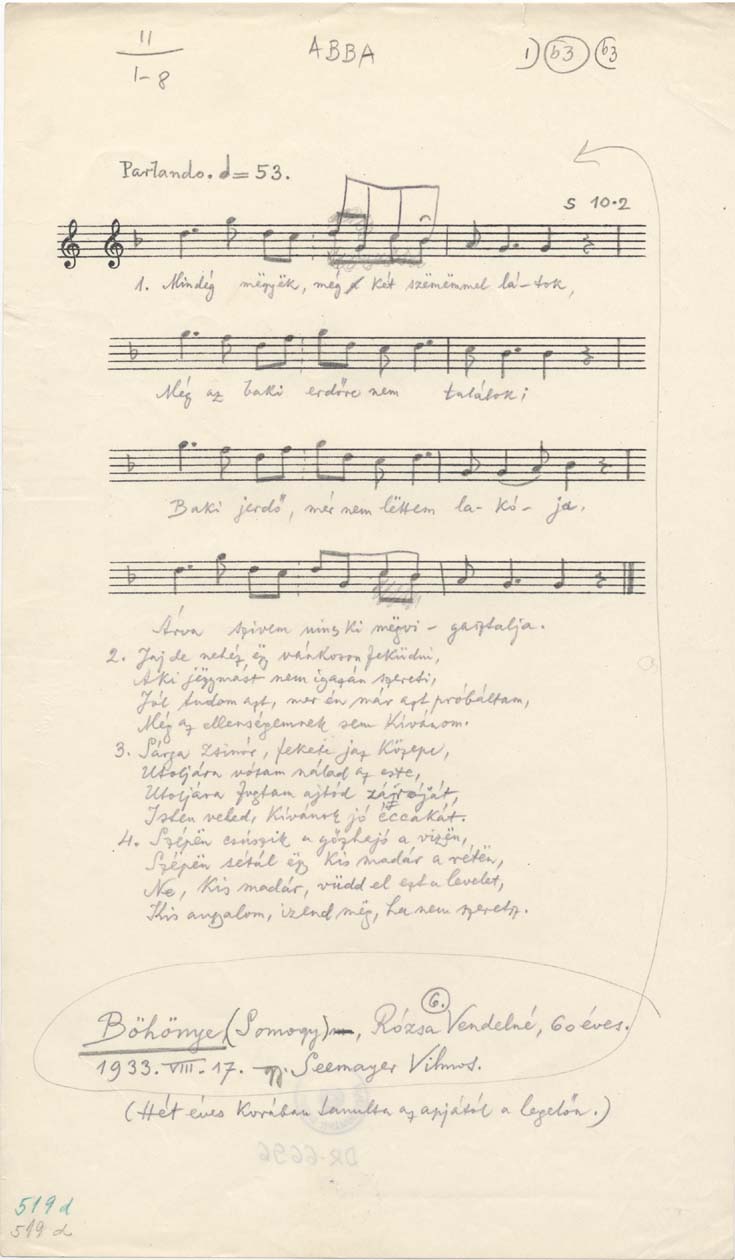 11
1-8
ABBA
1) b3 b3
Parlando. = 53.
S 10·2
1. Mindég mëgyëk, még két szëmëmmel lá-tok,
Még az baki erdőre nem találok;
Baki jerdő, mér nem lëttem la-kó-ja.
Árva szivem nins ki mëgvi-gasztalja.
2. Jaj de nehéz ëgy vánkoson feküdni,
Aki jëgymást nem igazán szereti,
Jól tudom azt, mer én már azt próbáltam,
Még az ellenségemnek sem kívánom.
3. Sárga zsinór, fekete jaz közepe,
Utoljára vótam nálad az este,
Utoljára fogtam ajtód zárját,
Isten veled, kívánok jó éccakát.
4. Szépën csúszik a gőzhajó a vizën,
Szépën sétál ëgy kis madár a rétën,
Ne, kis madár, vüdd el ezt a levelet,
Kis angyalom, izend mëg, ha nem szeretsz.
6.
Böhönye (Somogy), Rózsa Vendelné, 60 éves.
1933. VIII. 17. gy. Seemayer Vilmos.
(Hét éves korában tanulta az apjától a legelőn.)
DR-6656
519 d
519 d